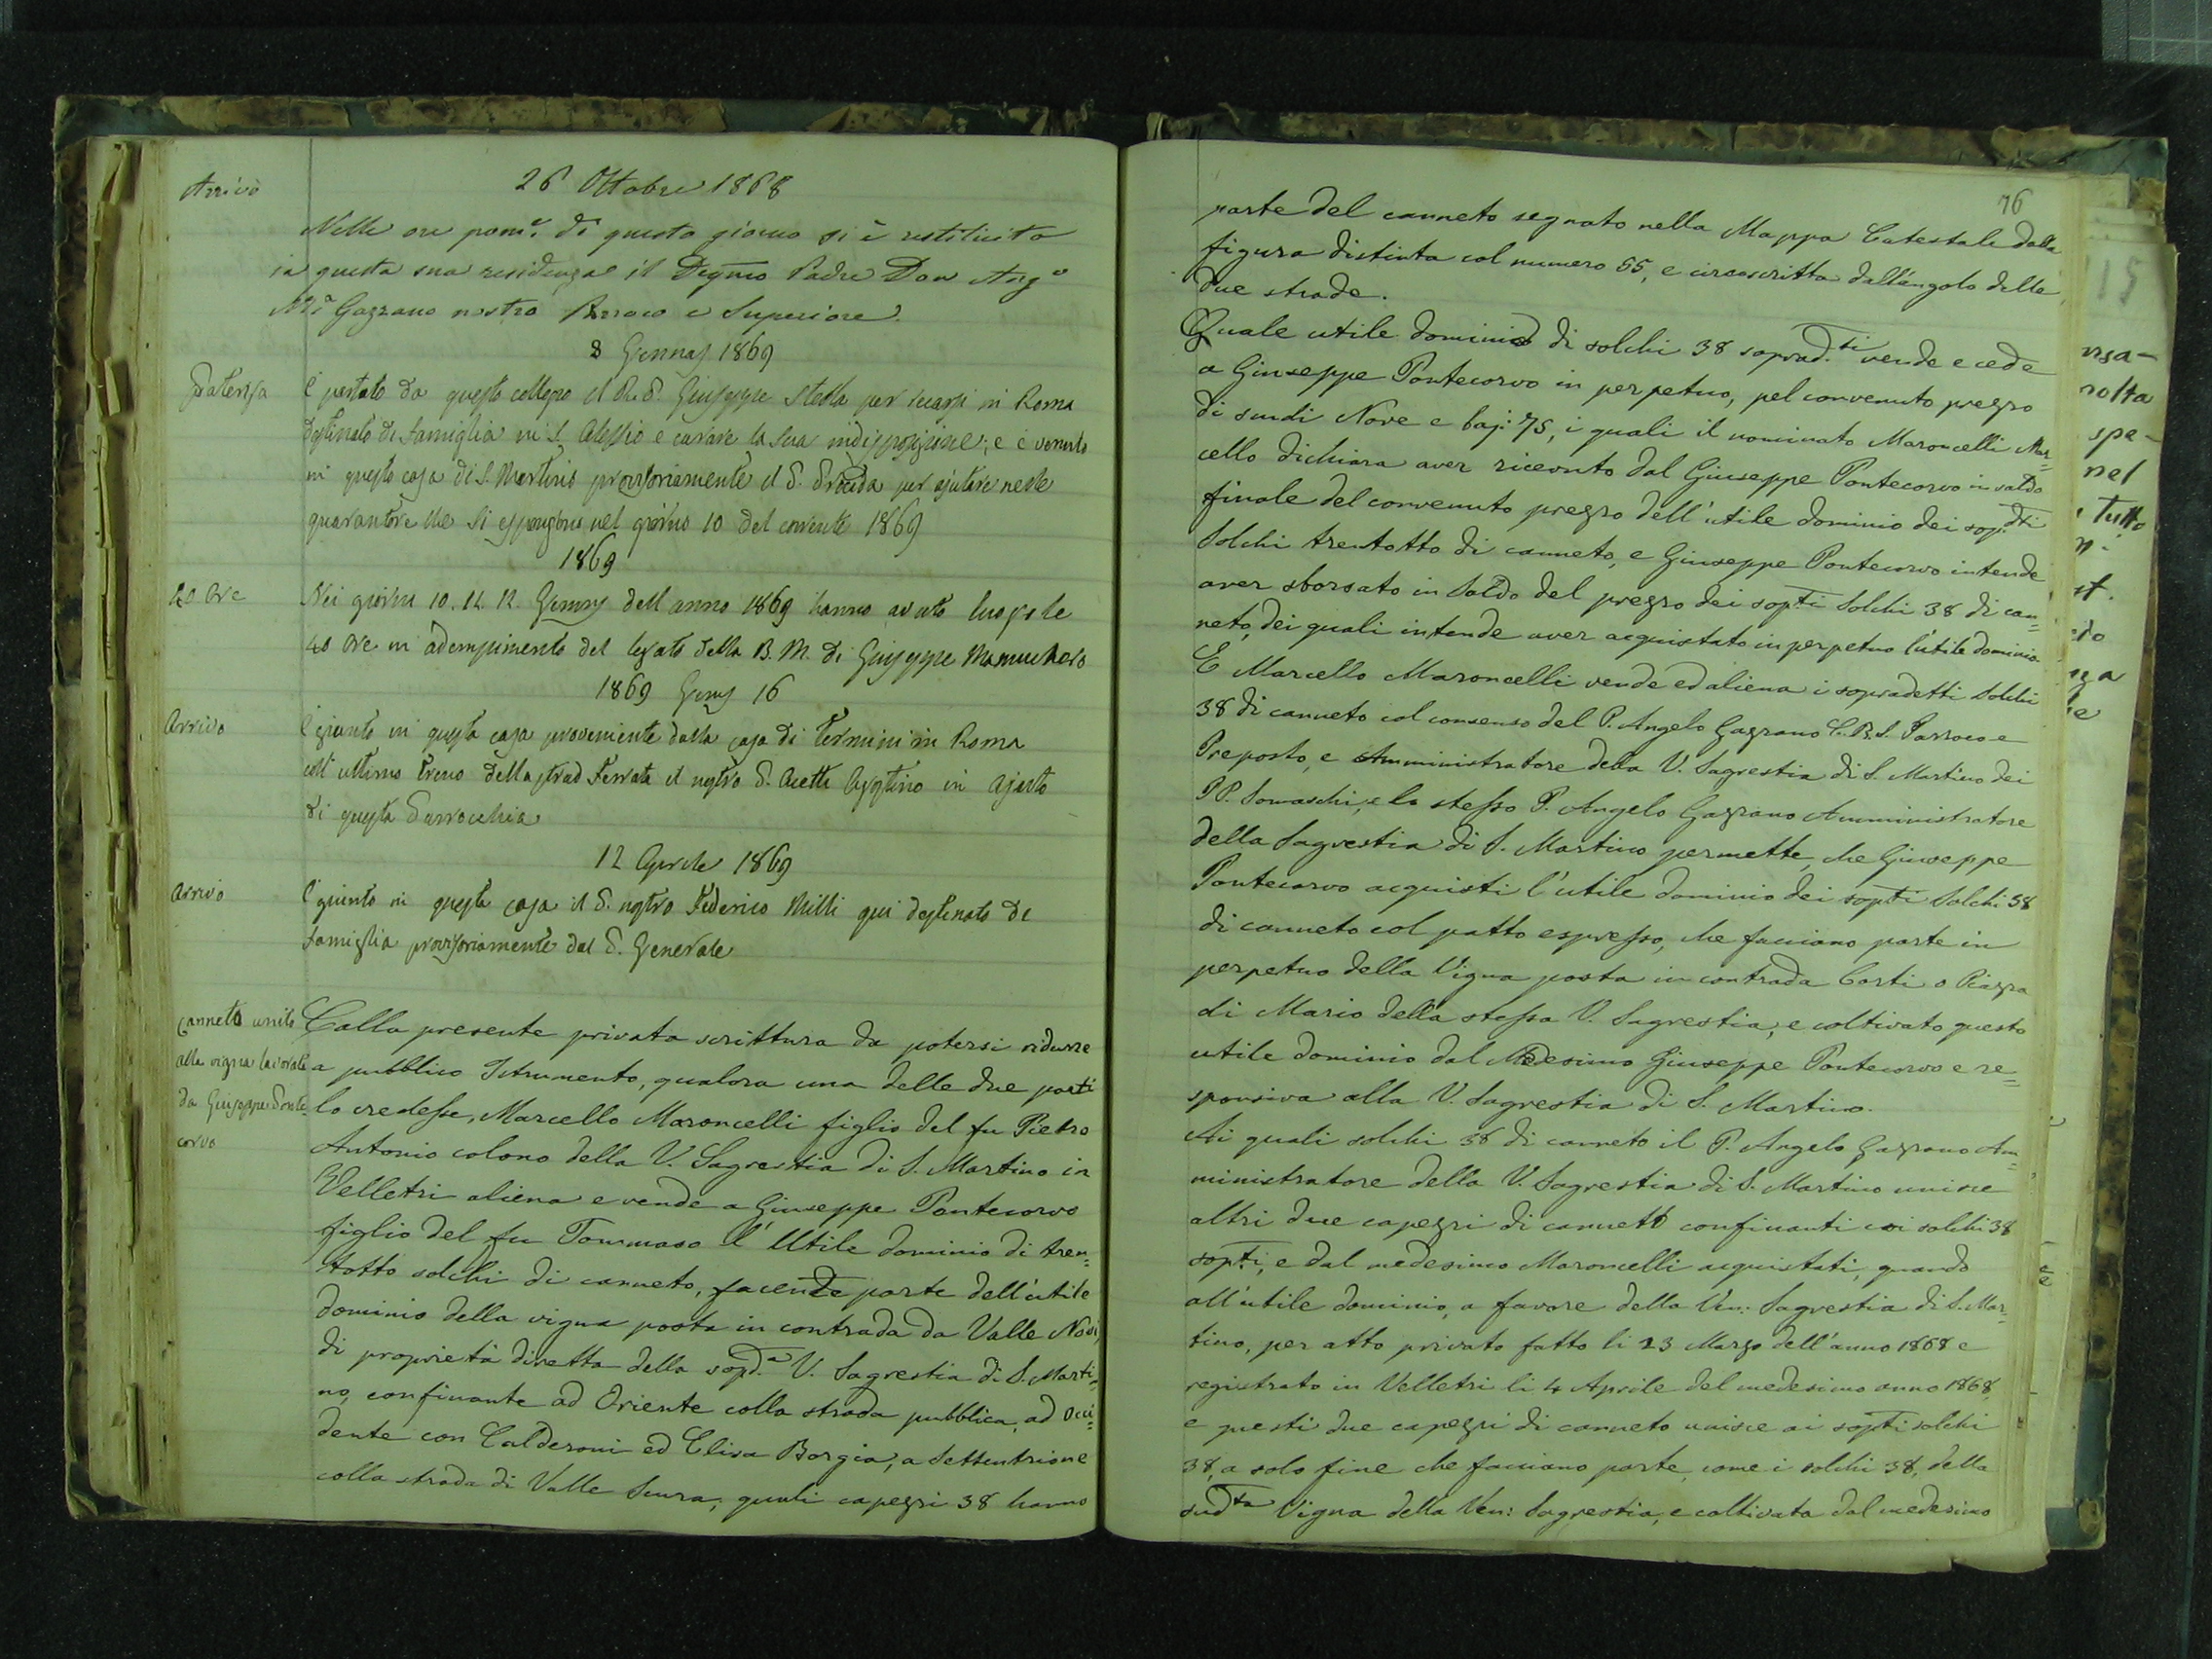 Arrivo
26 Ottobre 1868
Nelle ore pome. di questo giorno si è restituito
in questa sua residenza il Degmo Padre Don Ango
Ma Gazzano nostro Parroco e Superiore.
8 Gennaj 1869
Partenza
È partato da questo collegio il R. P. Giuseppe Stella per recarsi in Roma
destinato di famiglia in S. Alessio e curare la sua indisposizione; e è venuto
in questa casa di S. Martino provisoriamente il P. Procida per ajutare nelle
quarantore che si espongono nel giorno 10 del corrente 1869
1869
40 Ore
Nei giorni 10. 11. 12. Genny dell anno 1869 hanno avuto luogo le
40 Ore in adempimento del legato della B. M. di Giuseppe Mamucharo
1869 Geny 16
Arrivo
È giunto in questa casa proveniente dalla casa di Termini in Roma
coll' ultimo treno della strad ferrata il nostro P. Agostino in ajuto
di questa Parrocchia
12 Aprile 1869
Arrivo
È giunto in questa casa il P. nostro Federico Milli qui destinato di
famiglia provisoriamente dal P. Generale
Canneto unito
alla vigna lavorata
da Giuseppe Ponte
corvo
Colla presente privata scrittura da potersi ridurre
a pubblico Istrumento, qualora una delle due parti
lo credesse, Marcello Maroncelli figlio del fu Pietro
Antonio colono della V. Sagrestia di S. Martino in
Velletri aliena e vende a Giuseppe Pontecorvo
figlio del fu Tommaso l' Utile dominio di tren=
totto solchi di canneto, facente parte dell' utile
dominio della vigna posta in contrada da Valle Novi,
di proprietà diretta della sopd.a V. Sagrestia di S. Marti=
no, confinante ad Oriente colla strada pubblica, ad Occi=
dente con Calderoni ed Elisa Borgia, a Settentrione
colla strada di Valle Scura, quali capezzi 38 hanno
76
parte del canneto segnato nella Mappa Catestale dalla
figura distinta col numero 55, e circoscritta dall'angolo delle
due strade.
Quale utile dominio di solchi 38 soprad.ti vende e cede
a Giuseppe Pontecorvo in perpetuo, pel convenuto prezzo
di scudi Nove e baj: 75, i quali il nominato Maroncelli Mar=
cello dichiara aver ricevuto dal Giuseppe Pontecorvo in saldo
finale del convenuto prezzo dell' utile dominio dei sop.dti
Solchi trentotto di canneto, e Giuseppe Pontecorvo intende
aver sborsato in Saldo del prezzo dei sopti Solchi 38 di can=
neto, dei quali intende aver acquistato in perpetuo l'utile dominio.
E Marcello Maroncelli vende ed aliena i sopradetti Solchi
38 di canneto col consenso del P. Angelo Gazzano C. R. S. Parroco e
Preposto, e Amministratore della V. Sagrestia di S. Martino dei
PP. Somaschi, e lo stesso P. Angelo Gazzano Amministratore
della Sagrestia di S. Martino permette, che Giuseppe
Pontecorvo acquisti l'utile dominio dei sopti Solchi 38
di canneto col patto espresso, che facciano parte in
perpetuo della Vigna posta in contrada Corti o Piazza
di Mario della stessa V. Sagrestia, e coltivato questo
utile dominio dal Medesimo Giuseppe Pontecorvo e re=
sponsiva alla V. Sagrestia di S. Martino.
Ai quali solchi 38 di canneto il P. Angelo Gazzano Am=
ministratore della V. Sagrestia di S. Martino unisce
altri due capezzi di canneto confinanti coi solchi 38
sopti, e dal medesimo Maroncelli acquistati, quando
all' utile dominio, a favore della Ven: Sagrestia di S. Mar=
tino, per atto privato fatto li 23 Marzo dell' anno 1868 e
registrato in Velletri li 4 Aprile del medesimo anno 1868,
e questi due capezzi di canneto unisce ai sopti solchi
38, a solo fine che facciano parte, come i solchi 38, della
sudta Vigna della Ven: Sagrestia, e coltivata dal medesimo
15
nolta
spe-
nel
Tutto